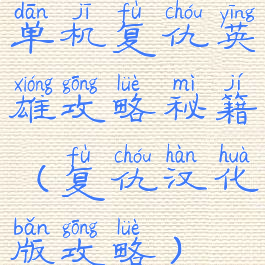 dān jī fù chóu yīng
单机复仇英
xióng gōng lüè mì jí
雄攻略秘籍
fù chóu hàn huà
（复仇汉化
bǎn gōng lüè
版攻略）